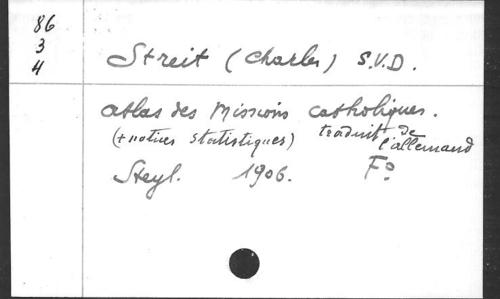 86
3
4
Streit (Charles) S.V.D.
Atlas des Missions catholiques.
(+ notices statistiques) traduit de l'allemand
Steyl. 1906. Fº